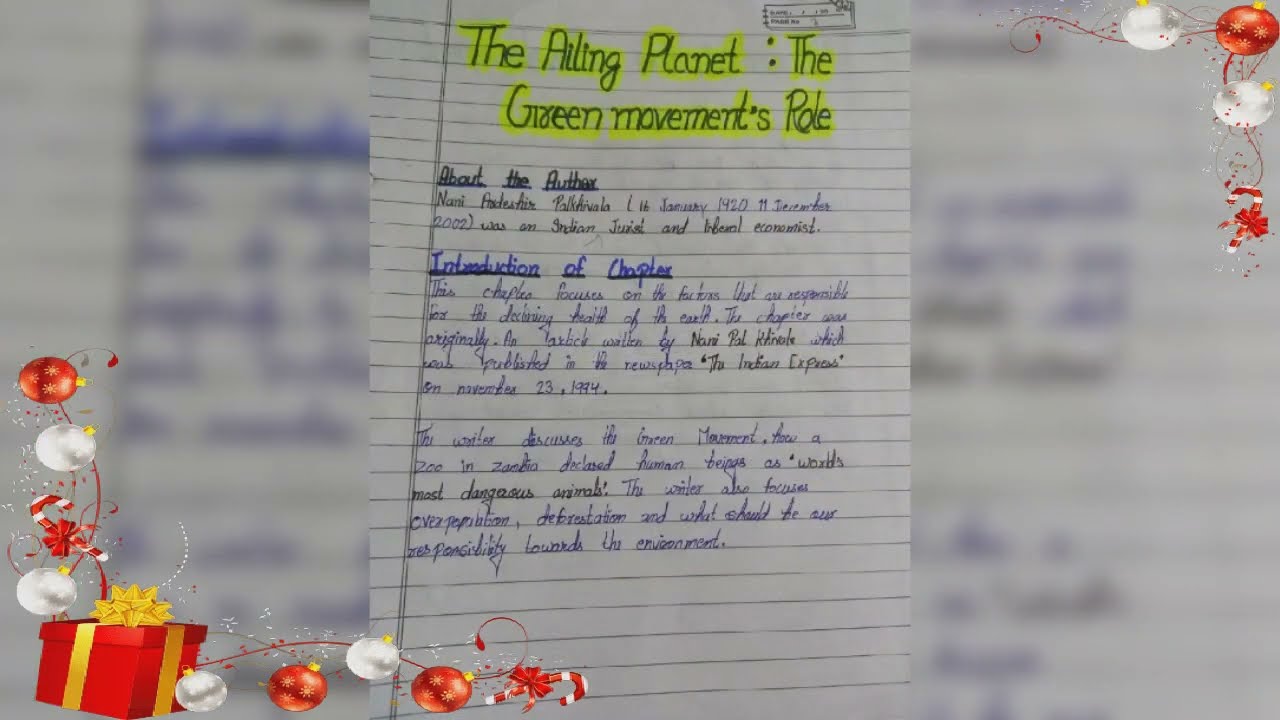 The Ailing Planet : The
Green movement's Role
About the Author
Nani Ardeshir Palkhivala ( 16 January 1920 11 December
2002) was an Indian Jurist and liberal economist.
Introduction of Chapter
This chapter focuses on the factors that are responsible
for the declining health of the earth. The chapter was
originally. An article written by Nani Pal khivala which
was published in the newspaper "The Indian Express"
on november 23, 1994.
The writer discusses the Green Movement, how a
zoo in zambia declared human beings as "world's
most dangerous animals". The writer also focuses
overpopulation, deforestation and what should be our
responsibility towards the environment.